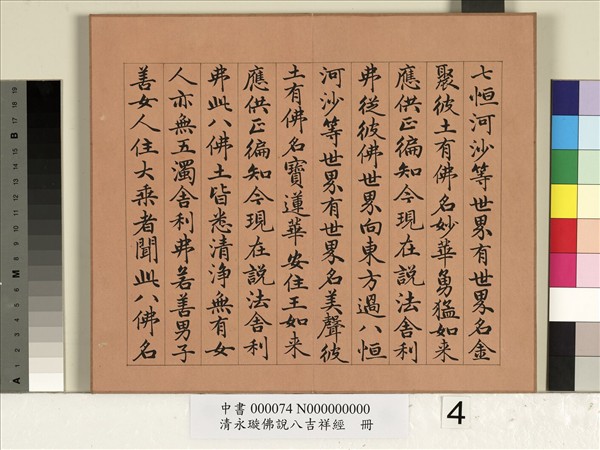 七恒河沙等世界有世界名金
聚彼土有佛名妙華勇猛如来
應供正徧知今現在説法舎利
弗從彼佛世界向東方過八恒
河沙等世界有世界名美聲彼
土有佛名寶蓮華安住王如来
應供正徧知今現在説法舎利
弗此八佛土皆悉清淨無有女
人亦無五濁舎利弗若善男子
善女人住大乘者聞此八佛名
中書 000074 N000000000
清永璇佛說八吉祥經 冊
4
19
18
17
B
16
15
M
5
4
3
2
1
A